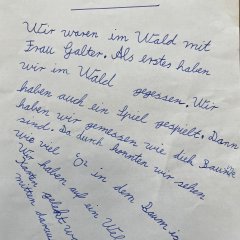 Wir waren im Wald mit
Frau Galter. Als erstes haben
wir im Wald gegessen. Wir
haben auch ein Spiel gespielt. Dann
haben wir gemessen wie dick Bäume
sind. Da durch konnten wir sehen
wie viel O² in dem Baum is
Wir haben auf ein Wel
Karten gelekt wo
mitten darau